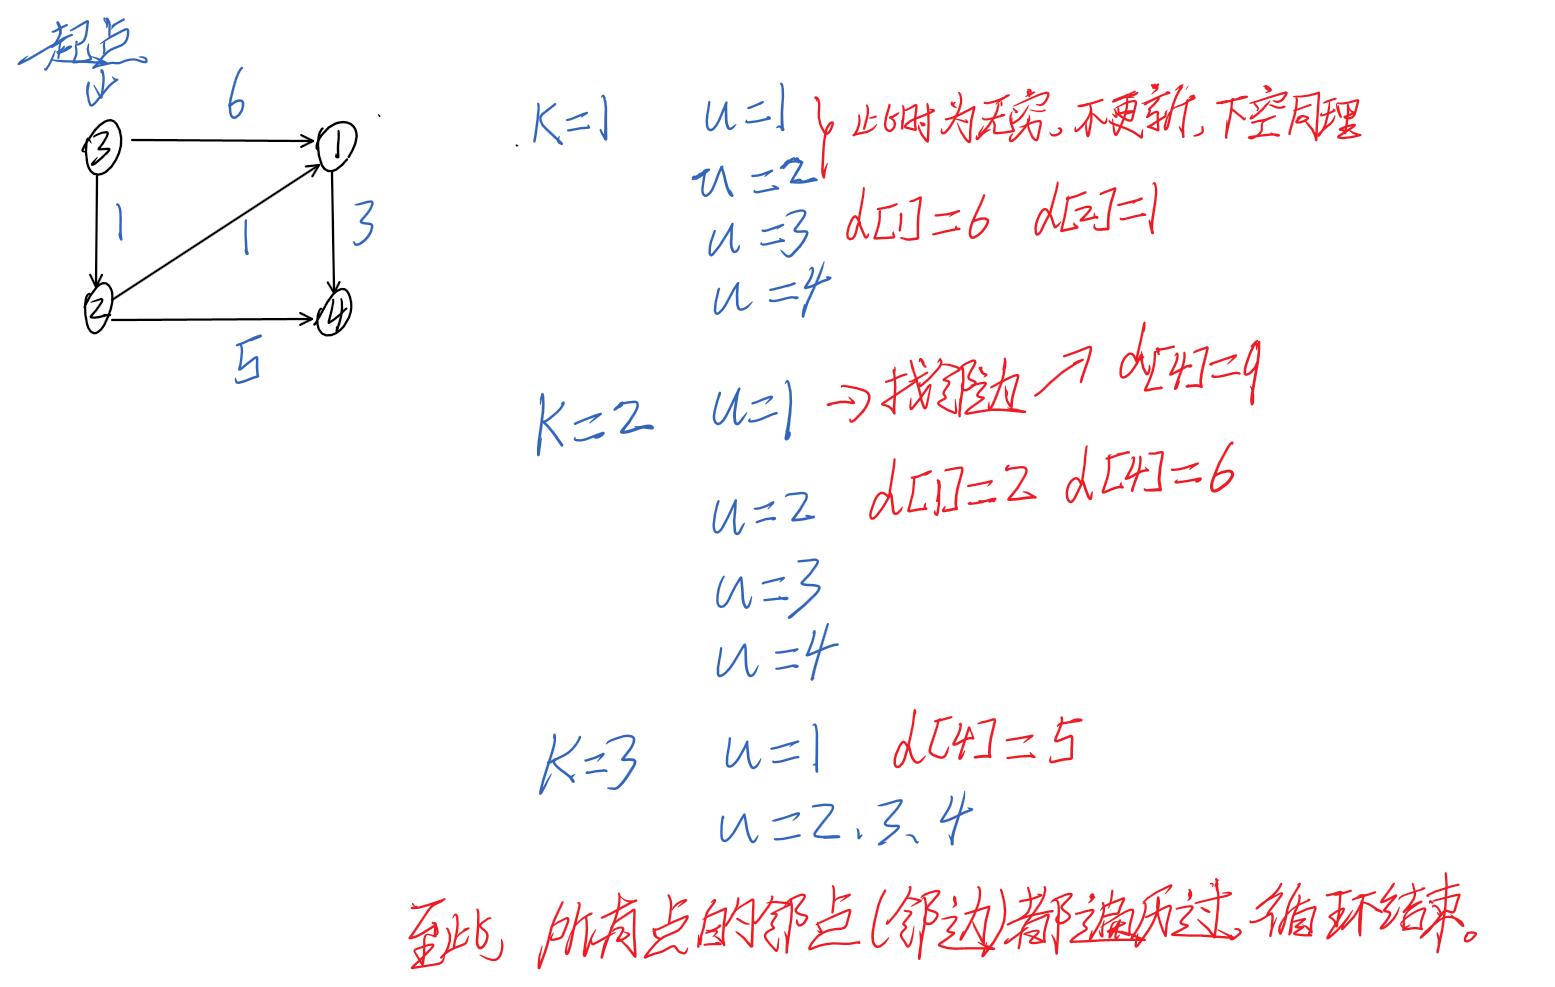 起点
6
③
①
1
1
3
②
④
5
K=1 u=1 此时为无穷,不更新,下空同理
u=2
u=3 d[1]=6 d[2]=1
u=4
K=2 u=1 → 找邻边 ↗ d[4]=9
u=2 d[1]=2 d[4]=6
u=3
u=4
K=3 u=1 d[4]=5
u=2、3、4
至此,所有点的邻点(邻边)都遍历过,循环结束。